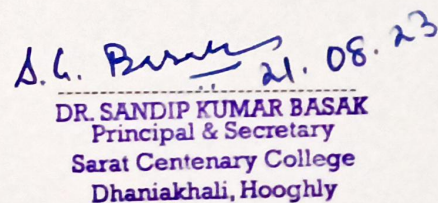 S.K. Basak 21.08.23
DR. SANDIP KUMAR BASAK
Principal & Secretary
Sarat Centenary College
Dhaniakhali, Hooghly